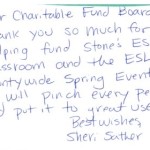 r Charitable Fund Board
ank you so much for
lping fund Stone's ESL
ssroom and the ESL
untywide Spring Event
will pinch every pe
d put it to great use
Best wishes,
Sheri Sather